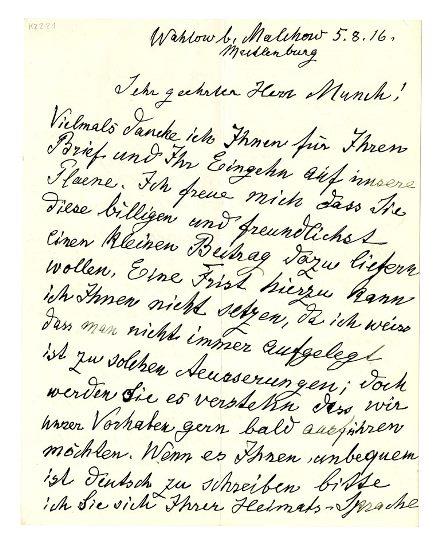 K2281
Wahlow b. Malchow 5.8.16.
Mecklenburg
Sehr geehrter Herr Munch!
Vielmals dancke ich Ihnen für Ihren
Brief und Ihr Eingehn auf unsere
Plaene. Ich freue mich dass Sie
diese billigen und freundlichst
einen kleinen Beitrag dazu liefern
wollen. Eine Frist hierzu kann
ich Ihnen nicht setzen, da ich weiss
dass man nicht immer aufgelegt
ist zu solchen Aeusserungen; doch
werden Sie es verstehn dass wir
unser Vorhaben gern bald ausführen
möchten. Wenn es Ihnen unbequem
ist deutsch zu schreiben bitte
ich Sie sich Ihrer Heimats-Sprache